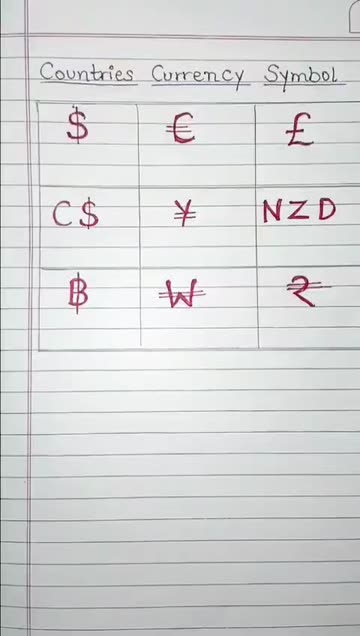 Countries Currency Symbol
$ € £
C$ ¥ NZD
฿ ₩ ₹